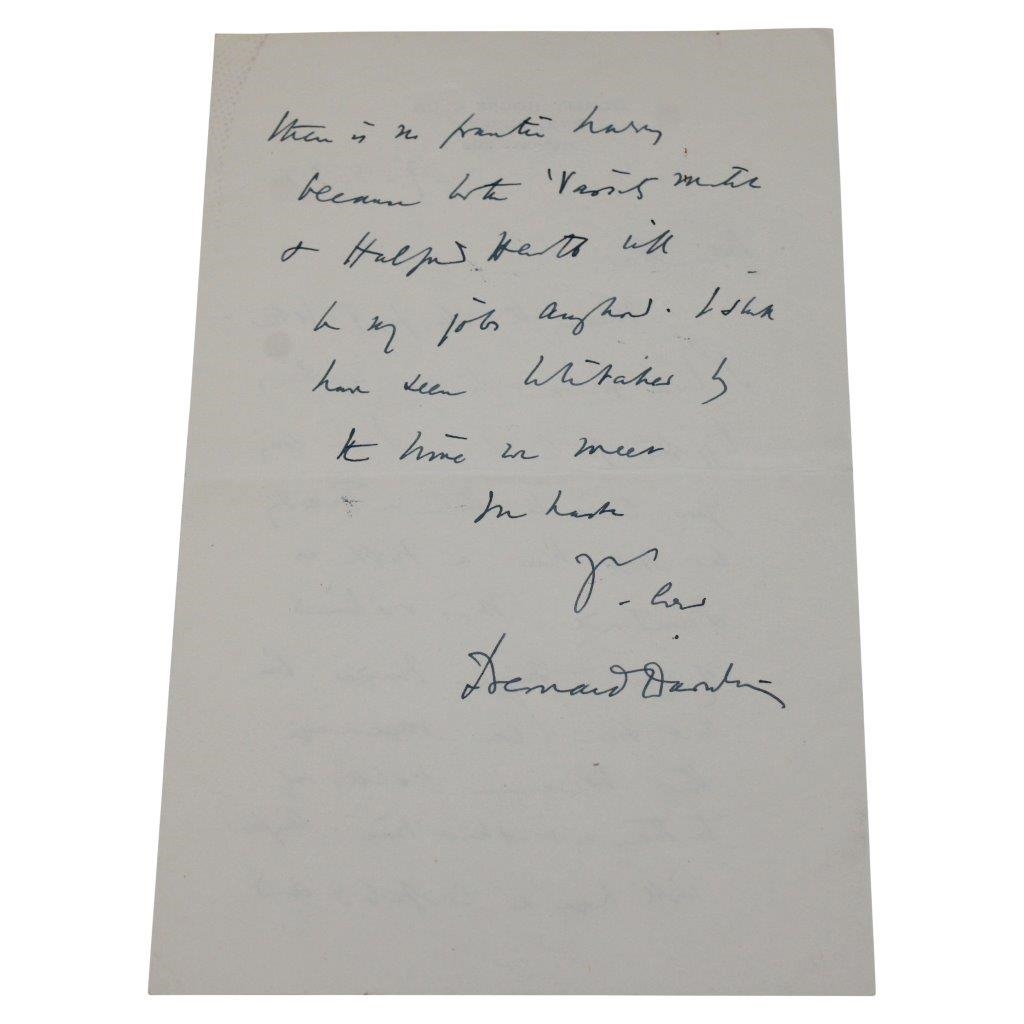 there is no frantic hurry
because both 'Varsity match
& Halford Hewitt will
be my jobs anyhow. I shall
have seen Whitaker by
the time we meet
In haste
Yrs
Bernard Darwin